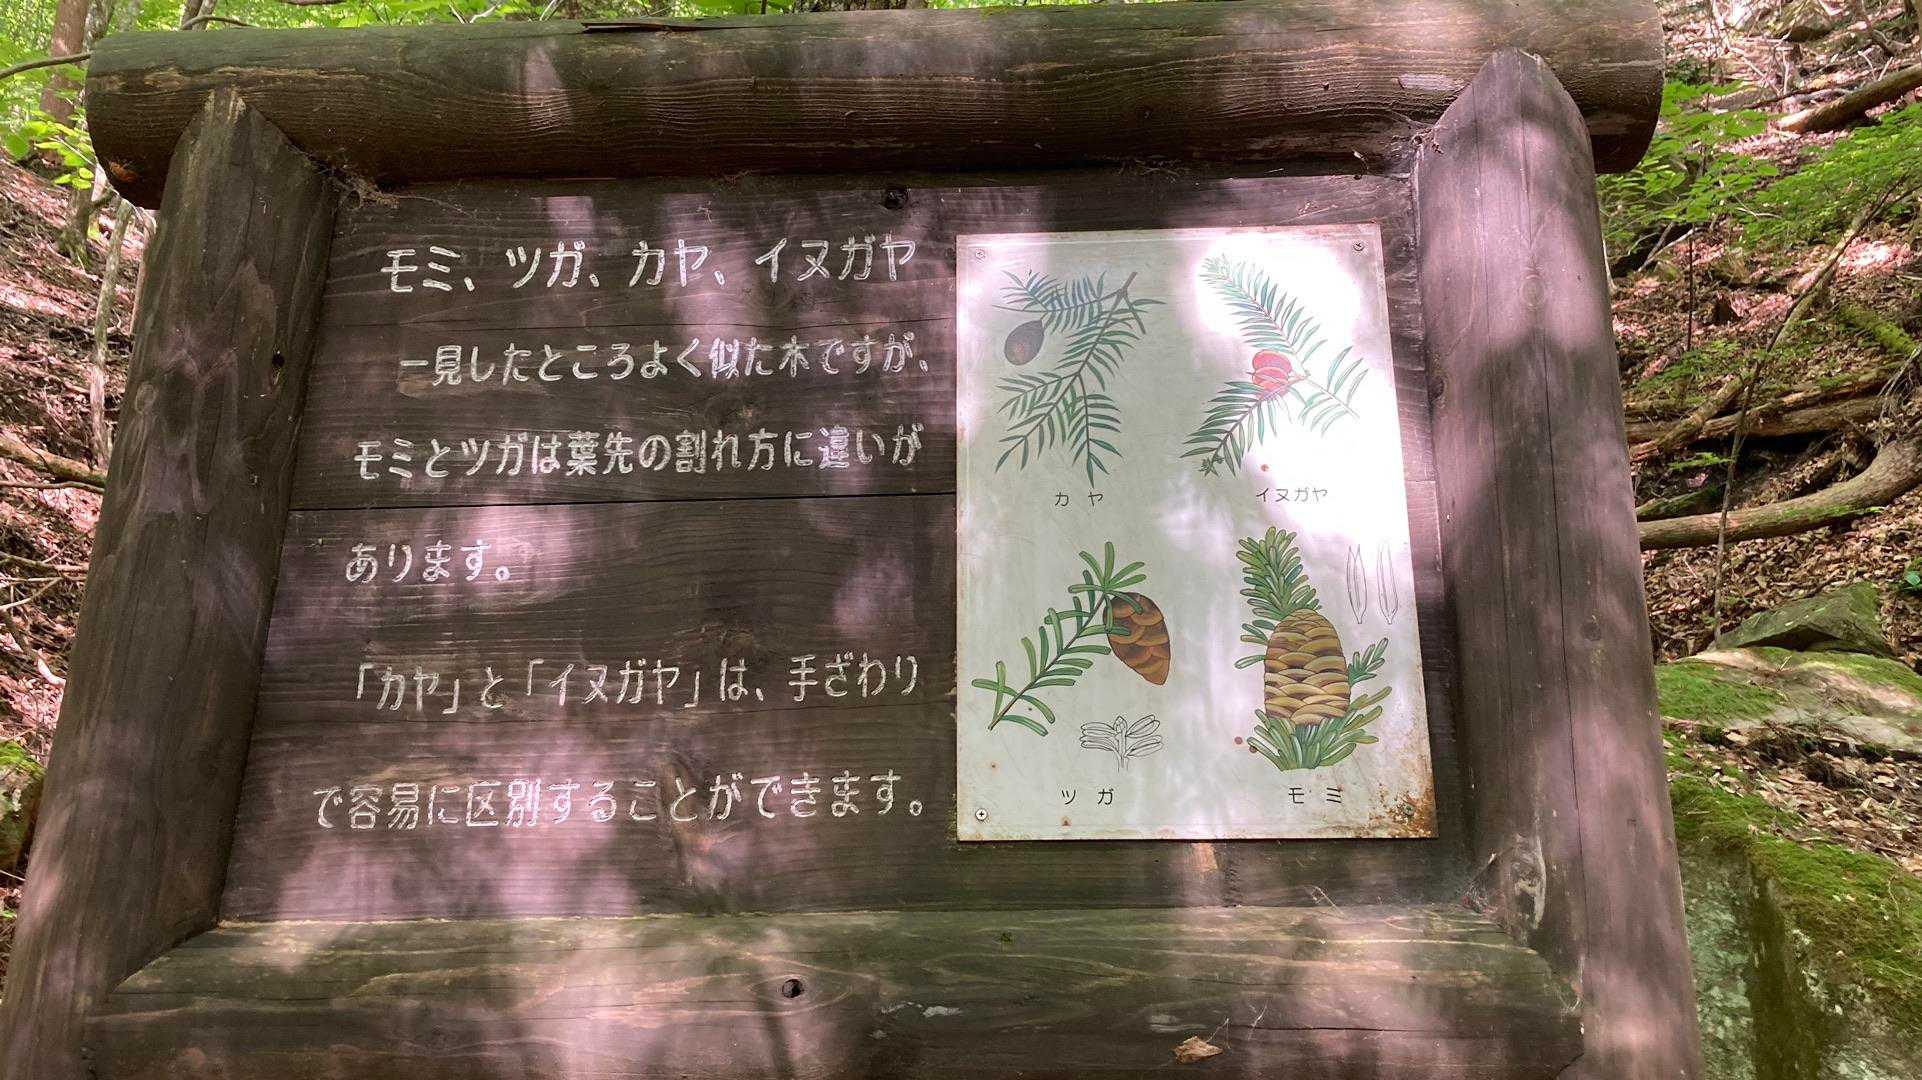 モミ、ツガ、カヤ、イヌガヤ
一見したところよく似た木ですが、
モミとツガは葉先の割れ方に違いが
あります。
「カヤ」と「イヌガヤ」は、手ざわり
で容易に区別することができます。
カヤ
イヌガヤ
ツガ
モミ